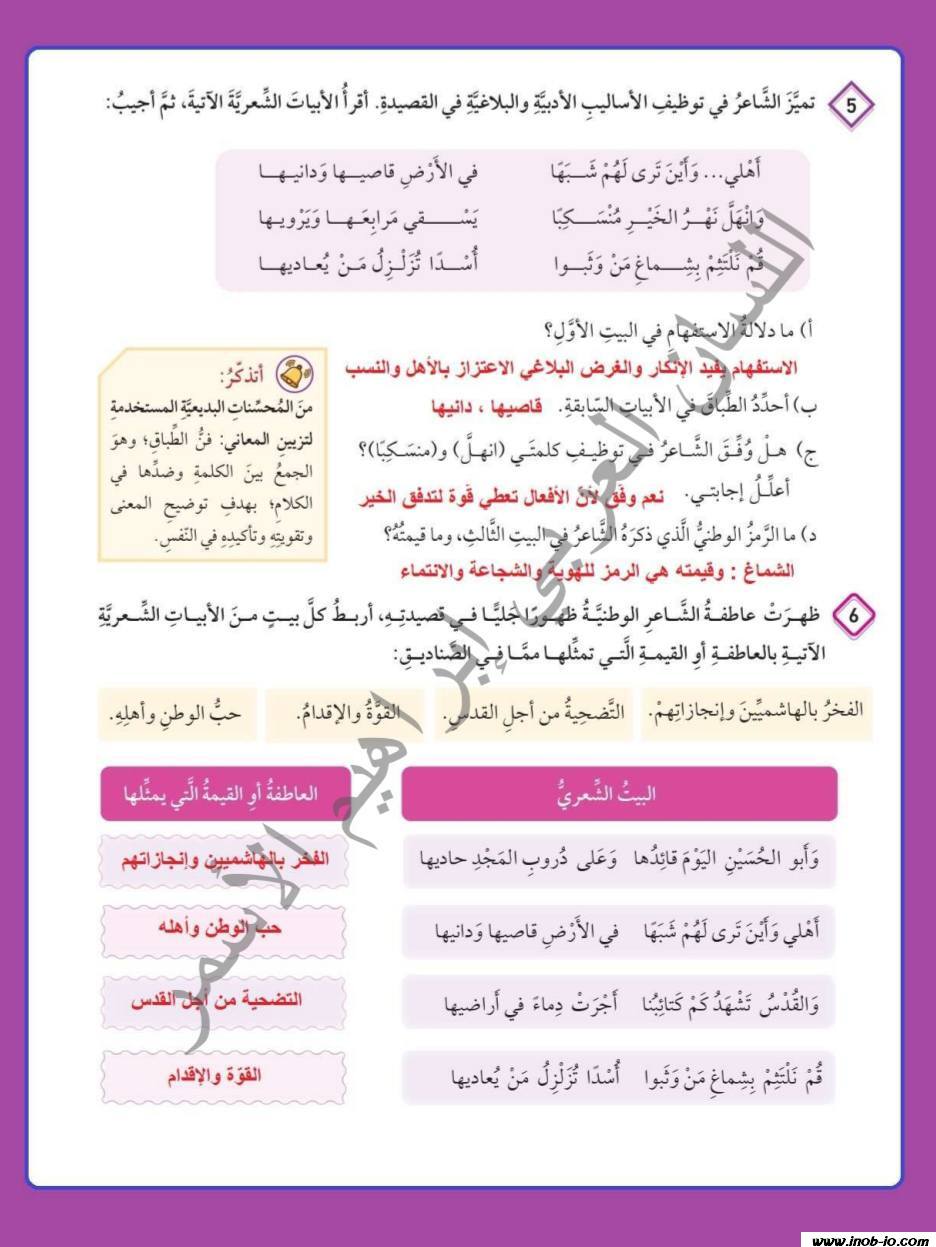 5 تميَّزَ الشَّاعرُ في توظيفِ الأساليبِ الأدبيَّةِ والبلاغيَّةِ في القصيدةِ. أقرأُ الأبياتَ الشِّعريَّةَ الآتيةَ، ثمَّ أجيبُ:
أَهْلي... وَأَيْنَ تَرى لَهُمْ شَـــبَهًا في الأَرْضِ قاصيـــها وَدانيـهـــا
وَانْهَلَّ نَهْـــرُ الخَيْـــرِ مُنْسَـــكِبًا يَسْـــــقي مَرابِعَـهـــا وَيَرْويـها
قُمْ نَلْتَثِمْ بِشِـــماغِ مَنْ وَثَبـــوا أُسْـــدًا تُزَلْـــزِلُ مَـنْ يُعاديهـــا
أ) ما دلالةُ الاستفهامِ في البيتِ الأوَّلِ؟
الاستفهام يفيد الإنكار والغرض البلاغي الاعتزاز بالأهل والنسب
ب) أحدِّدُ الطِّباقَ في الأبياتِ السّابقةِ. قاصيها ، دانيها
ج) هلْ وُفِّقَ الشَّاعرُ في توظيفِ كلمتَي (انهلَّ) و(منسَكِبًا)؟
أعلِّلُ إجابتي. نعم وفّق لأنّ الأفعال تعطي قوة لتدفق الخير
د) ما الرَّمزُ الوطنيُّ الَّذي ذكرَهُ الشَّاعرُ في البيتِ الثَّالثِ، وما قيمتُهُ؟
الشماغ : وقيمته هي الرمز للهوية والشجاعة والانتماء
أتذكّرُ:
منَ المُحسِّناتِ البديعيَّةِ المستخدمةِ
لتزيينِ المعاني: فنُّ الطِّباقِ؛ وهوَ
الجمعُ بينَ الكلمةِ وضدِّها في
الكلامِ؛ بهدفِ توضيحِ المعنى
وتقويتِهِ وتأكيدِهِ في النّفسِ.
6 ظهرَتْ عاطفةُ الشَّاعرِ الوطنيَّةُ ظهورًا جليًّا في قصيدتِهِ، أربطُ كلَّ بيتٍ منَ الأبياتِ الشِّعريَّةِ
الآتيةِ بالعاطفةِ أوِ القيمةِ الَّتي تمثِّلُها ممَّا في الصَّناديقِ:
الفخرُ بالهاشميِّينَ وإنجازاتِهمْ. التَّضحيةُ من أجلِ القدسِ. القوَّةُ والإقدامُ. حبُّ الوطنِ وأهلِهِ.
البيتُ الشِّعريُّ العاطفةُ أوِ القيمةُ الَّتي يمثِّلها
وَأَبو الحُسَيْنِ اليَوْمَ قائِدُها وَعَلى دُروبِ المَجْدِ حاديها الفخر بالهاشميين وإنجازاتهم
أَهْلي وَأَيْنَ تَرى لَهُمْ شَبَهًا في الأَرْضِ قاصيها وَدانيها حب الوطن وأهله
وَالقُدْسُ تَشْهَدُ كَمْ كَتائِبُنا أَجْرَتْ دِماءً في أَراضيها التضحية من أجل القدس
قُمْ نَلْتَثِمْ بِشِماغِ مَنْ وَثَبوا أُسْدًا تُزَلْزِلُ مَنْ يُعاديها القوّة والإقدام
اللسان العربي إبراهيم الأسمر
www.inob-jo.com